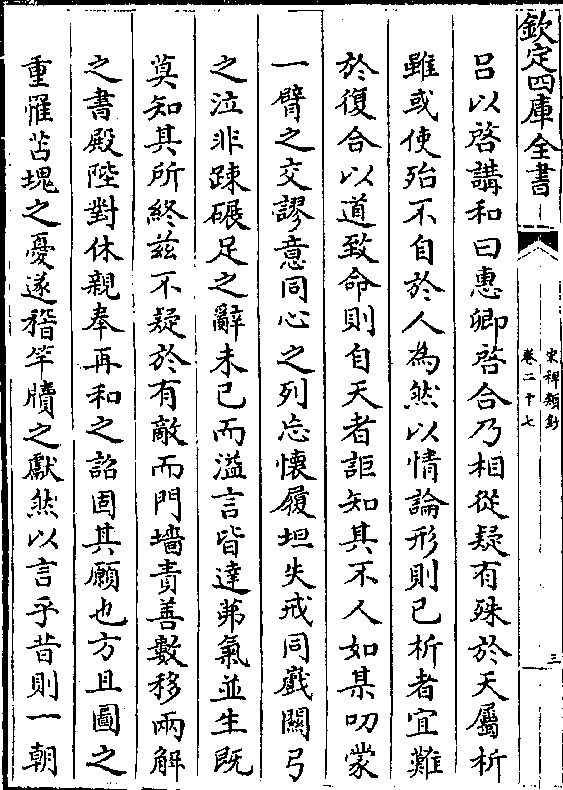 欽定四庫全書
宋稗類鈔
卷二十七
三
呂以啓講和曰惠卿啓合乃相從疑有殊於天屬析
雖或使殆不自於人為然以情論形則已析者宜難
於復合以道致命則自天者詎知其不人如某叨蒙
一臂之交謬意同心之列忘懷履坦失戒同戲關弓
之泣非踈碾足之辭未已而溢言皆達弗氣並生既
莫知其所終兹不疑於有敵而門墻責善數移兩解
之書殿陛對休親奉再和之詔固其願也方且圖之
重罹苫塊之憂遂稽竿牘之獻然以言乎昔則一朝